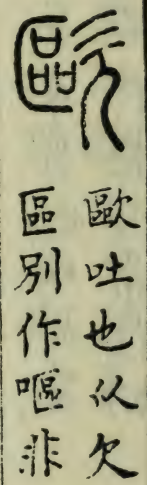 歐
歐吐也从欠
區別作嘔非